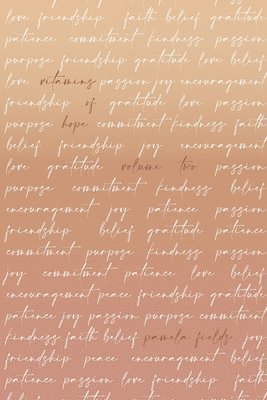 love friendship faith belief gratitude
patience commitment kindness passion
purpose friendship gratitude belief
love vitamins passion joy encouragement
friendship of gratitude love passion
purpose hope commitment kindness faith
belief friendship joy encouragement
love gratitude volume two passion
purpose commitment kindness belief
encouragement joy patience passion
friendship belief gratitude patience
commitment purpose kindness passion
joy commitment patience love belief
encouragement peace friendship gratitude
patience joy passion purpose commitment
kindness faith belief pamela fields joy
friendship peace encouragement belief
patience passion love friendship faith